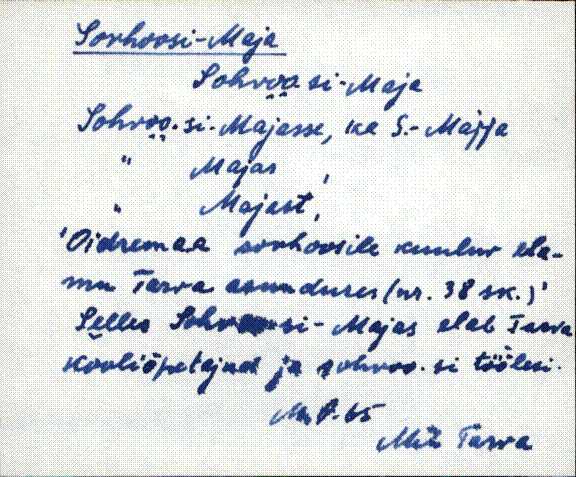 Sovhoosi-Maja
Sohvoo si-Maja
Sohvoo. si-Majasse, ka S.-Majja
" Majas
" Majast,
'Oidremaa sovhoosile kuuluv ela-
mu Tarva asunduses (nr. 38 sk.)'
Selles Sohvoo si-Majas elab Tarva
kooliõpetajad ja sohvoo. si töölesi.
Mih Tarva